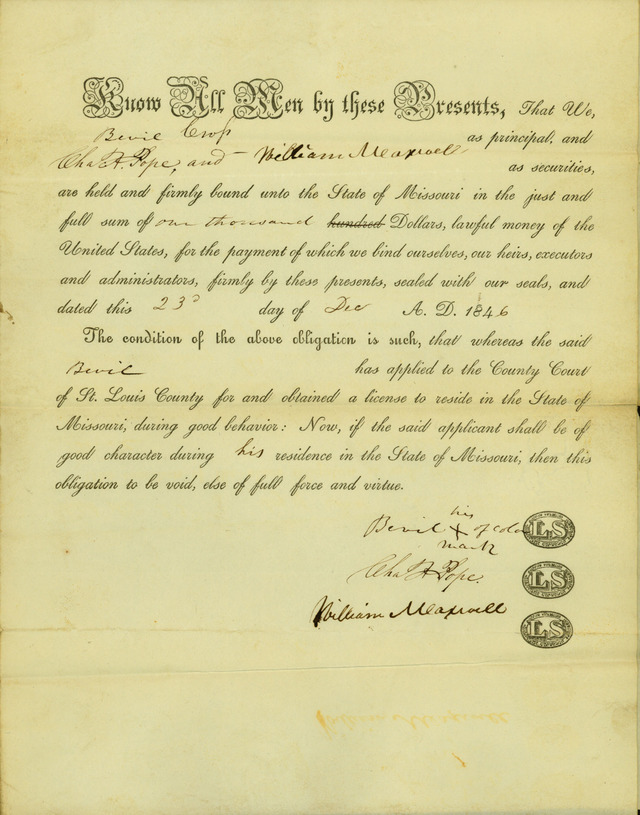 Know All Men by these Presents, That We,
Bevil Cross as principal, and
Chas H. Pope, and William Maxwell as securities,
are held and firmly bound unto the State of Missouri in the just and
full sum of one thousand hundred Dollars, lawful money of the
United States, for the payment of which we bind ourselves, our heirs, executors
and administrators, firmly by these presents, sealed with our seals, and
dated this 23d day of Dec A. D. 1846
The condition of the above obligation is such, that whereas the said
Bevil has applied to the County Court
of St. Louis County for and obtained a license to reside in the State of
Missouri, during good behavior: Now, if the said applicant shall be of
good character during his residence in the State of Missouri, then this
obligation to be void, else of full force and virtue.
his
Bevil X of color LS
mark
Chas H Pope. LS
William Maxwell LS